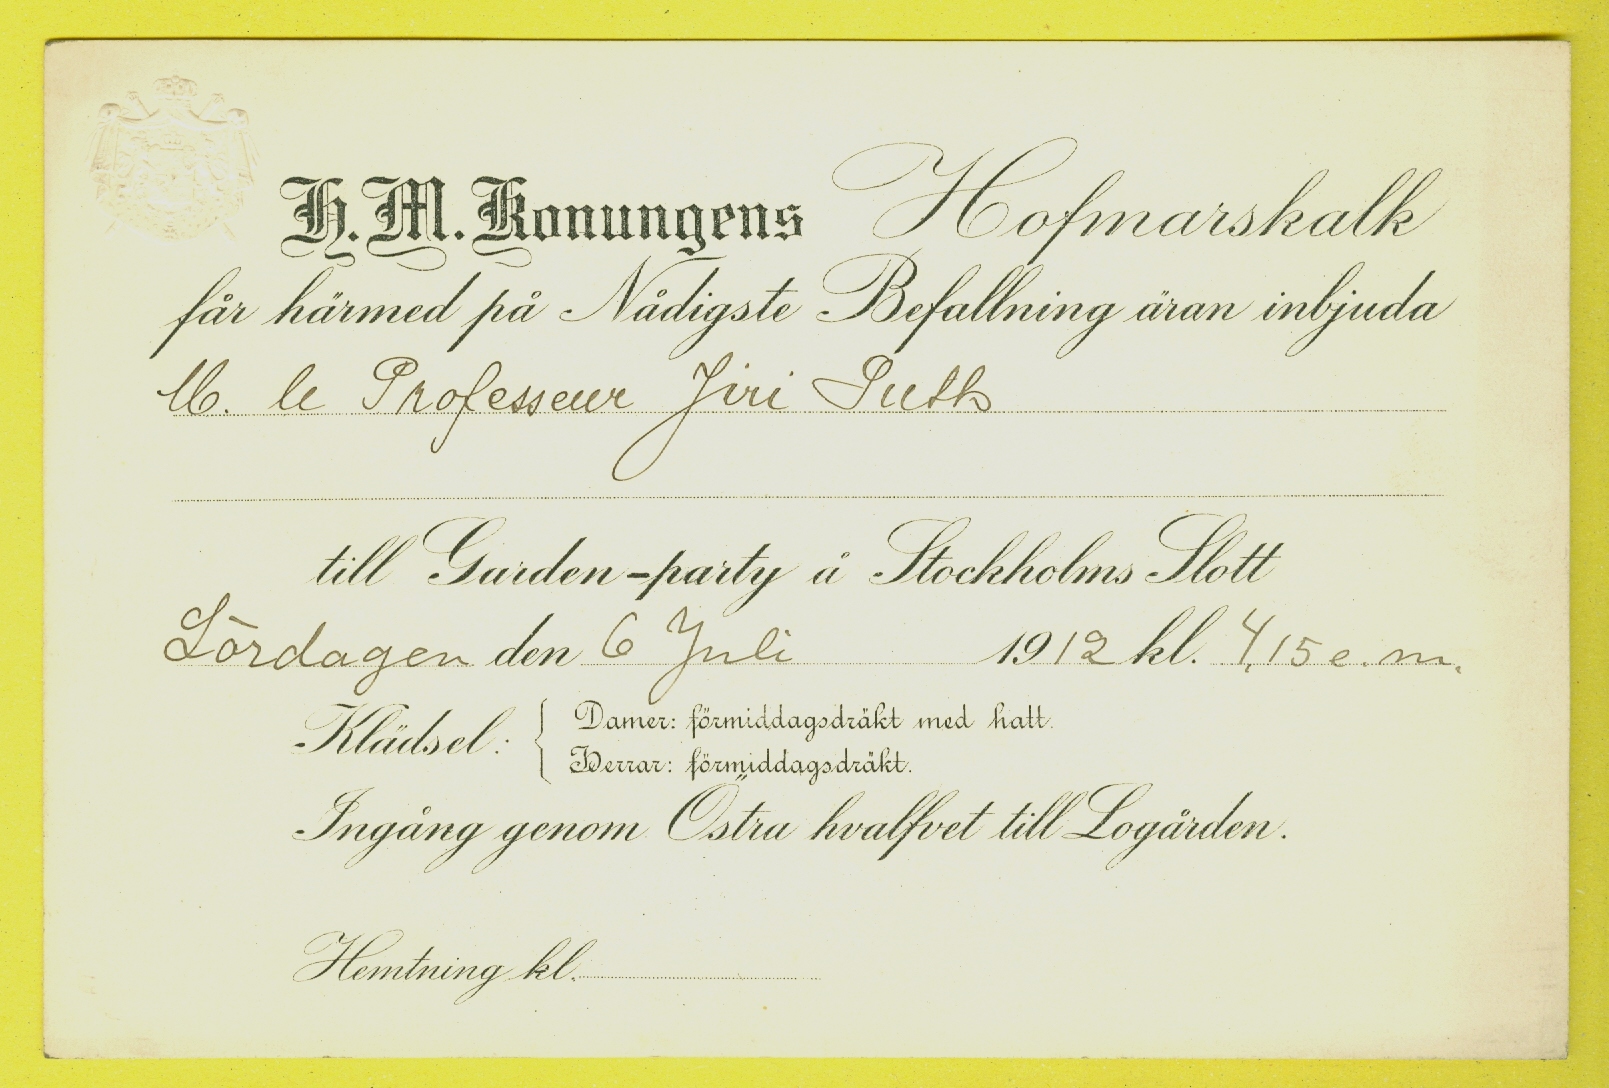 H. M. Konungens Hofmarskalk
får härmed på Nådigste Befallning äran inbjuda
M. le Professeur Jiri Guth
till Garden-party å Stockholms Slott
Lördagen den 6 Juli 1912 kl. 4,15 e. m.
Klädsel: { Damer: förmiddagsdräkt med hatt.
Herrar: förmiddagsdräkt.
Ingång genom Östra hvalfvet till Logården.
Hemtning kl.